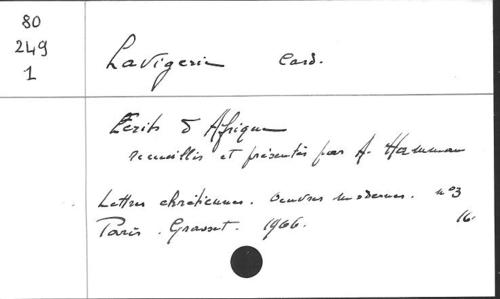 80
249
1
Lavigerie Card.
Écrits d'Afrique
recueillis et présentés par A. Hamman
Lettres chrétiennes. Oeuvres modernes. n°3
Paris. Grasset. 1966. 16.